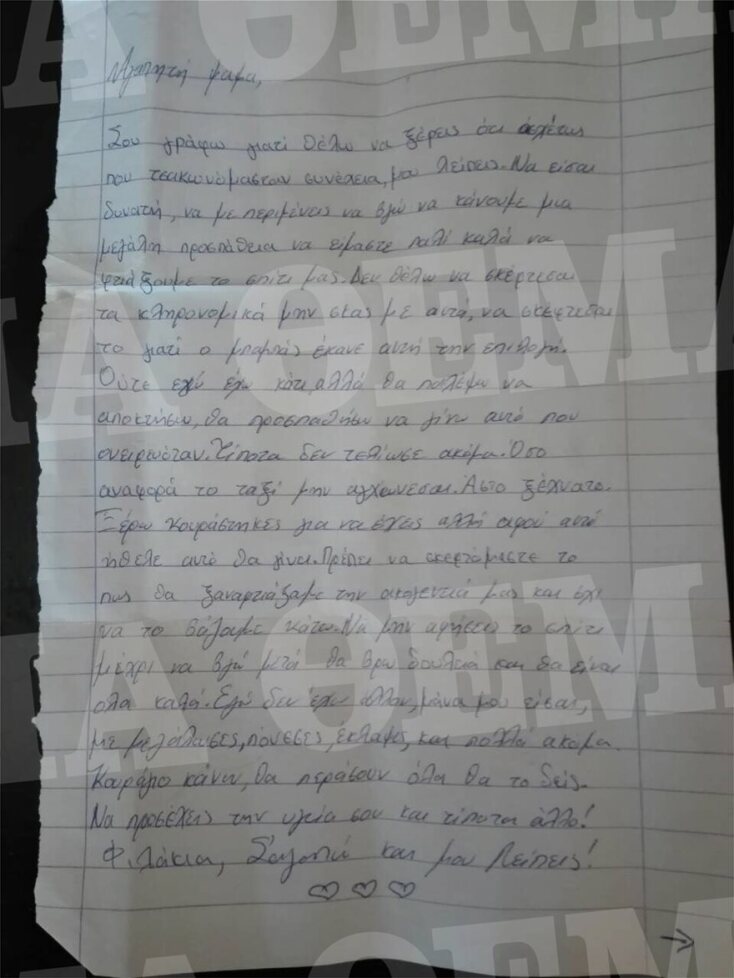 Αγαπητή μαμα,
Σου γράφω γιατί θέλω να ξέρεις ότι ασχέτως
που τσακωνόμασταν συνέχεια, μου λείπεις. Να είσαι
δυνατή, να με περιμένεις να βγώ να κάνουμε μια
μεγάλη προσπάθεια να είμαστε παλί καλά να
φτιάξουμε το σπίτι μας. Δεν θέλω να σκέφτεσαι
τα κληρονομικά μην σκας με αυτά, να σκέφτεσαι
το γιατί ο μπαμπάς έκανε αυτή την επιλογή.
Ούτε εγώ έχω κάτι, αλλά θα παλέψω να
αποκτήσω, θα προσπαθήσω να γίνω αυτό που
ονειρευόταν. Τίποτα δεν τελίωσε ακόμα. Όσο
αναφορά το ταξί μην αγχώνεσαι. Άστο ξέχνατο.
Ξέρω κουράστηκες για να έχεις αλλά αφού αυτό
ήθελε αυτό θα γίνει. Πρέπει να σκεφτόμαστε το
πως θα ξαναφτιάξαμε την οικογένειά μας και όχι
να το βάζαμε κάτω. Να μην αφήσεις το σπίτι
μέχρι να βγώ μετά θα βρω δουλειά και θα είναι
ολα καλά. Εγώ δεν έχω άλλον, μάνα μου είσαι,
με μεγάλωσες, πόνεσες, έκλαψες, και πολλά ακομα.
Κουράγιο κάνω, θα περάσουν όλα θα το δείς.
Να προσέχεις την υγεία σου και τίποτα άλλο!
Φιλάκια, Σ'αγαπώ και μου λείπεις!
ΘΕΜΑ
ΘΕΜΑ
ΘΕΜΑ
ΘΕΜΑ